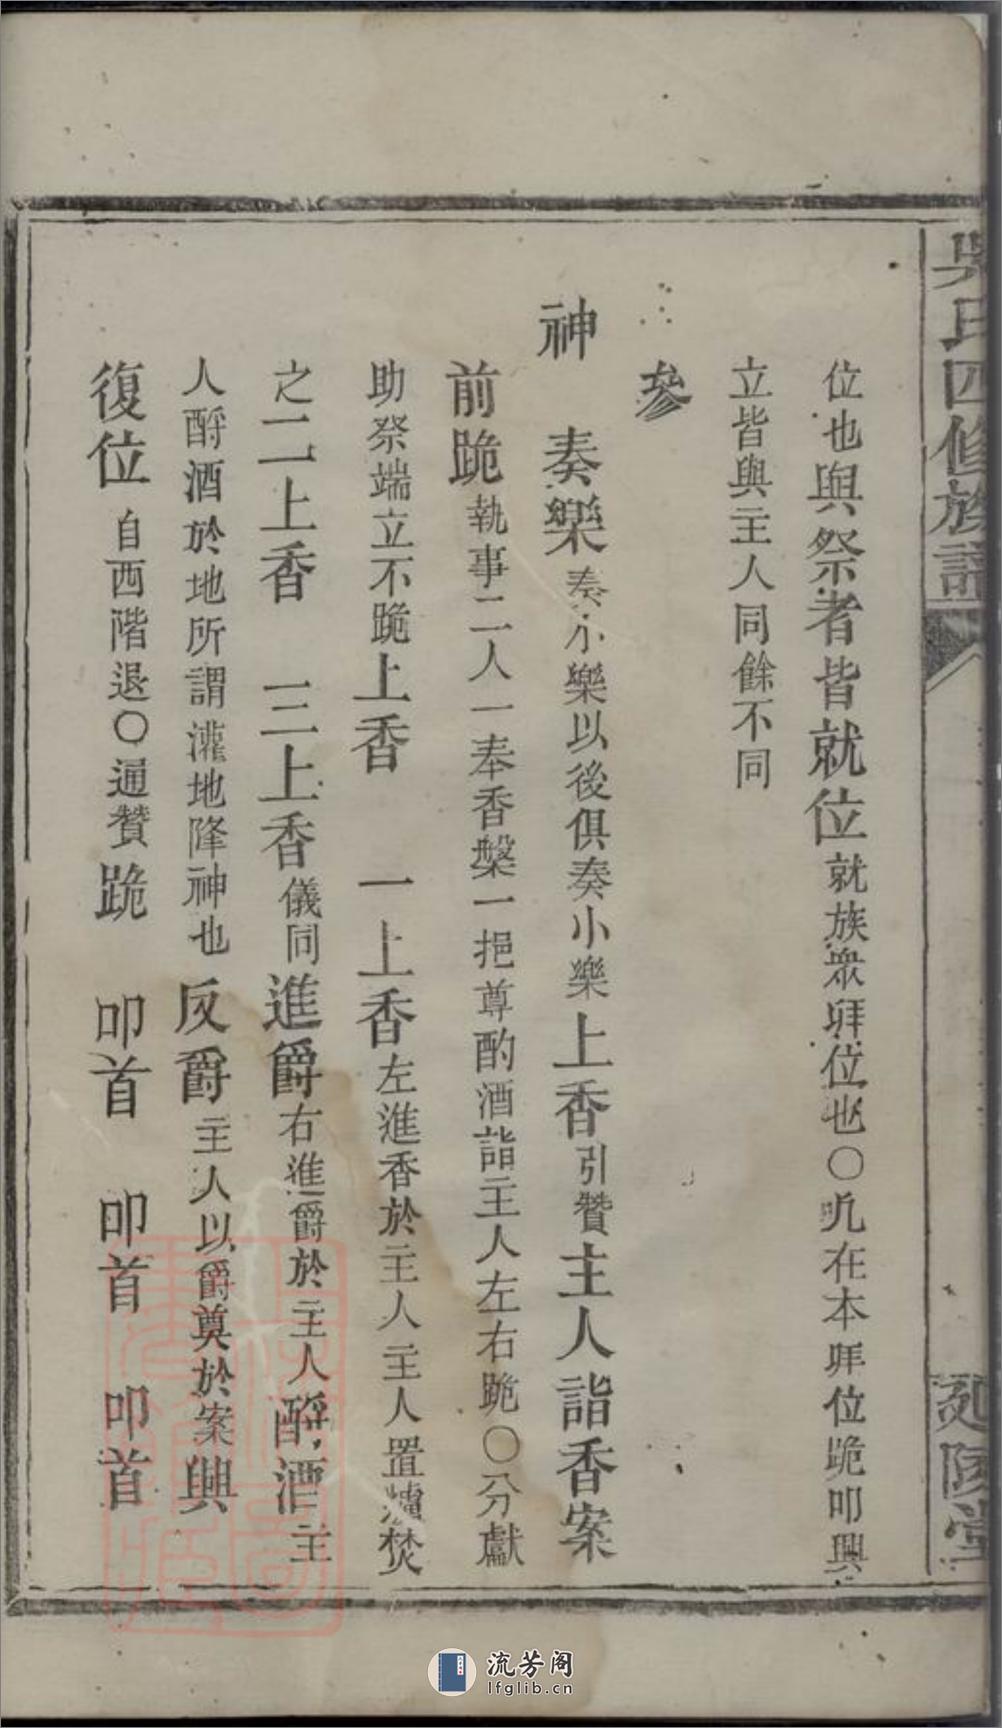 吳氏四修族譜
延陵堂
位也與祭者皆就位就族衆拜位也〇凡在本拜位跪叩興
立皆與主人同餘不同
參
神　奏樂奏小樂以後俱奏小樂上香引贊主人詣香案
前跪執事二人一奉香槃一挹尊酌酒詣主人左右跪〇分獻
助祭端立不跪上香　一上香左進香於主人主人置爐焚
之二上香　三上香儀同進爵右進爵於主人酹酒主
人酹酒於地所謂灌地降神也反爵主人以爵奠於案興
復位自西階退〇通贊跪　叩首　叩首　叩首
流芳阁
lfglib.cn